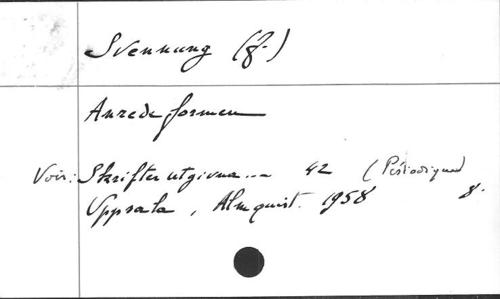 Svennung (J.)
Anredeformen
Voir: Skrifter utgivna... 42 (Périodiques)
8.
Uppsala, Almquist. 1958